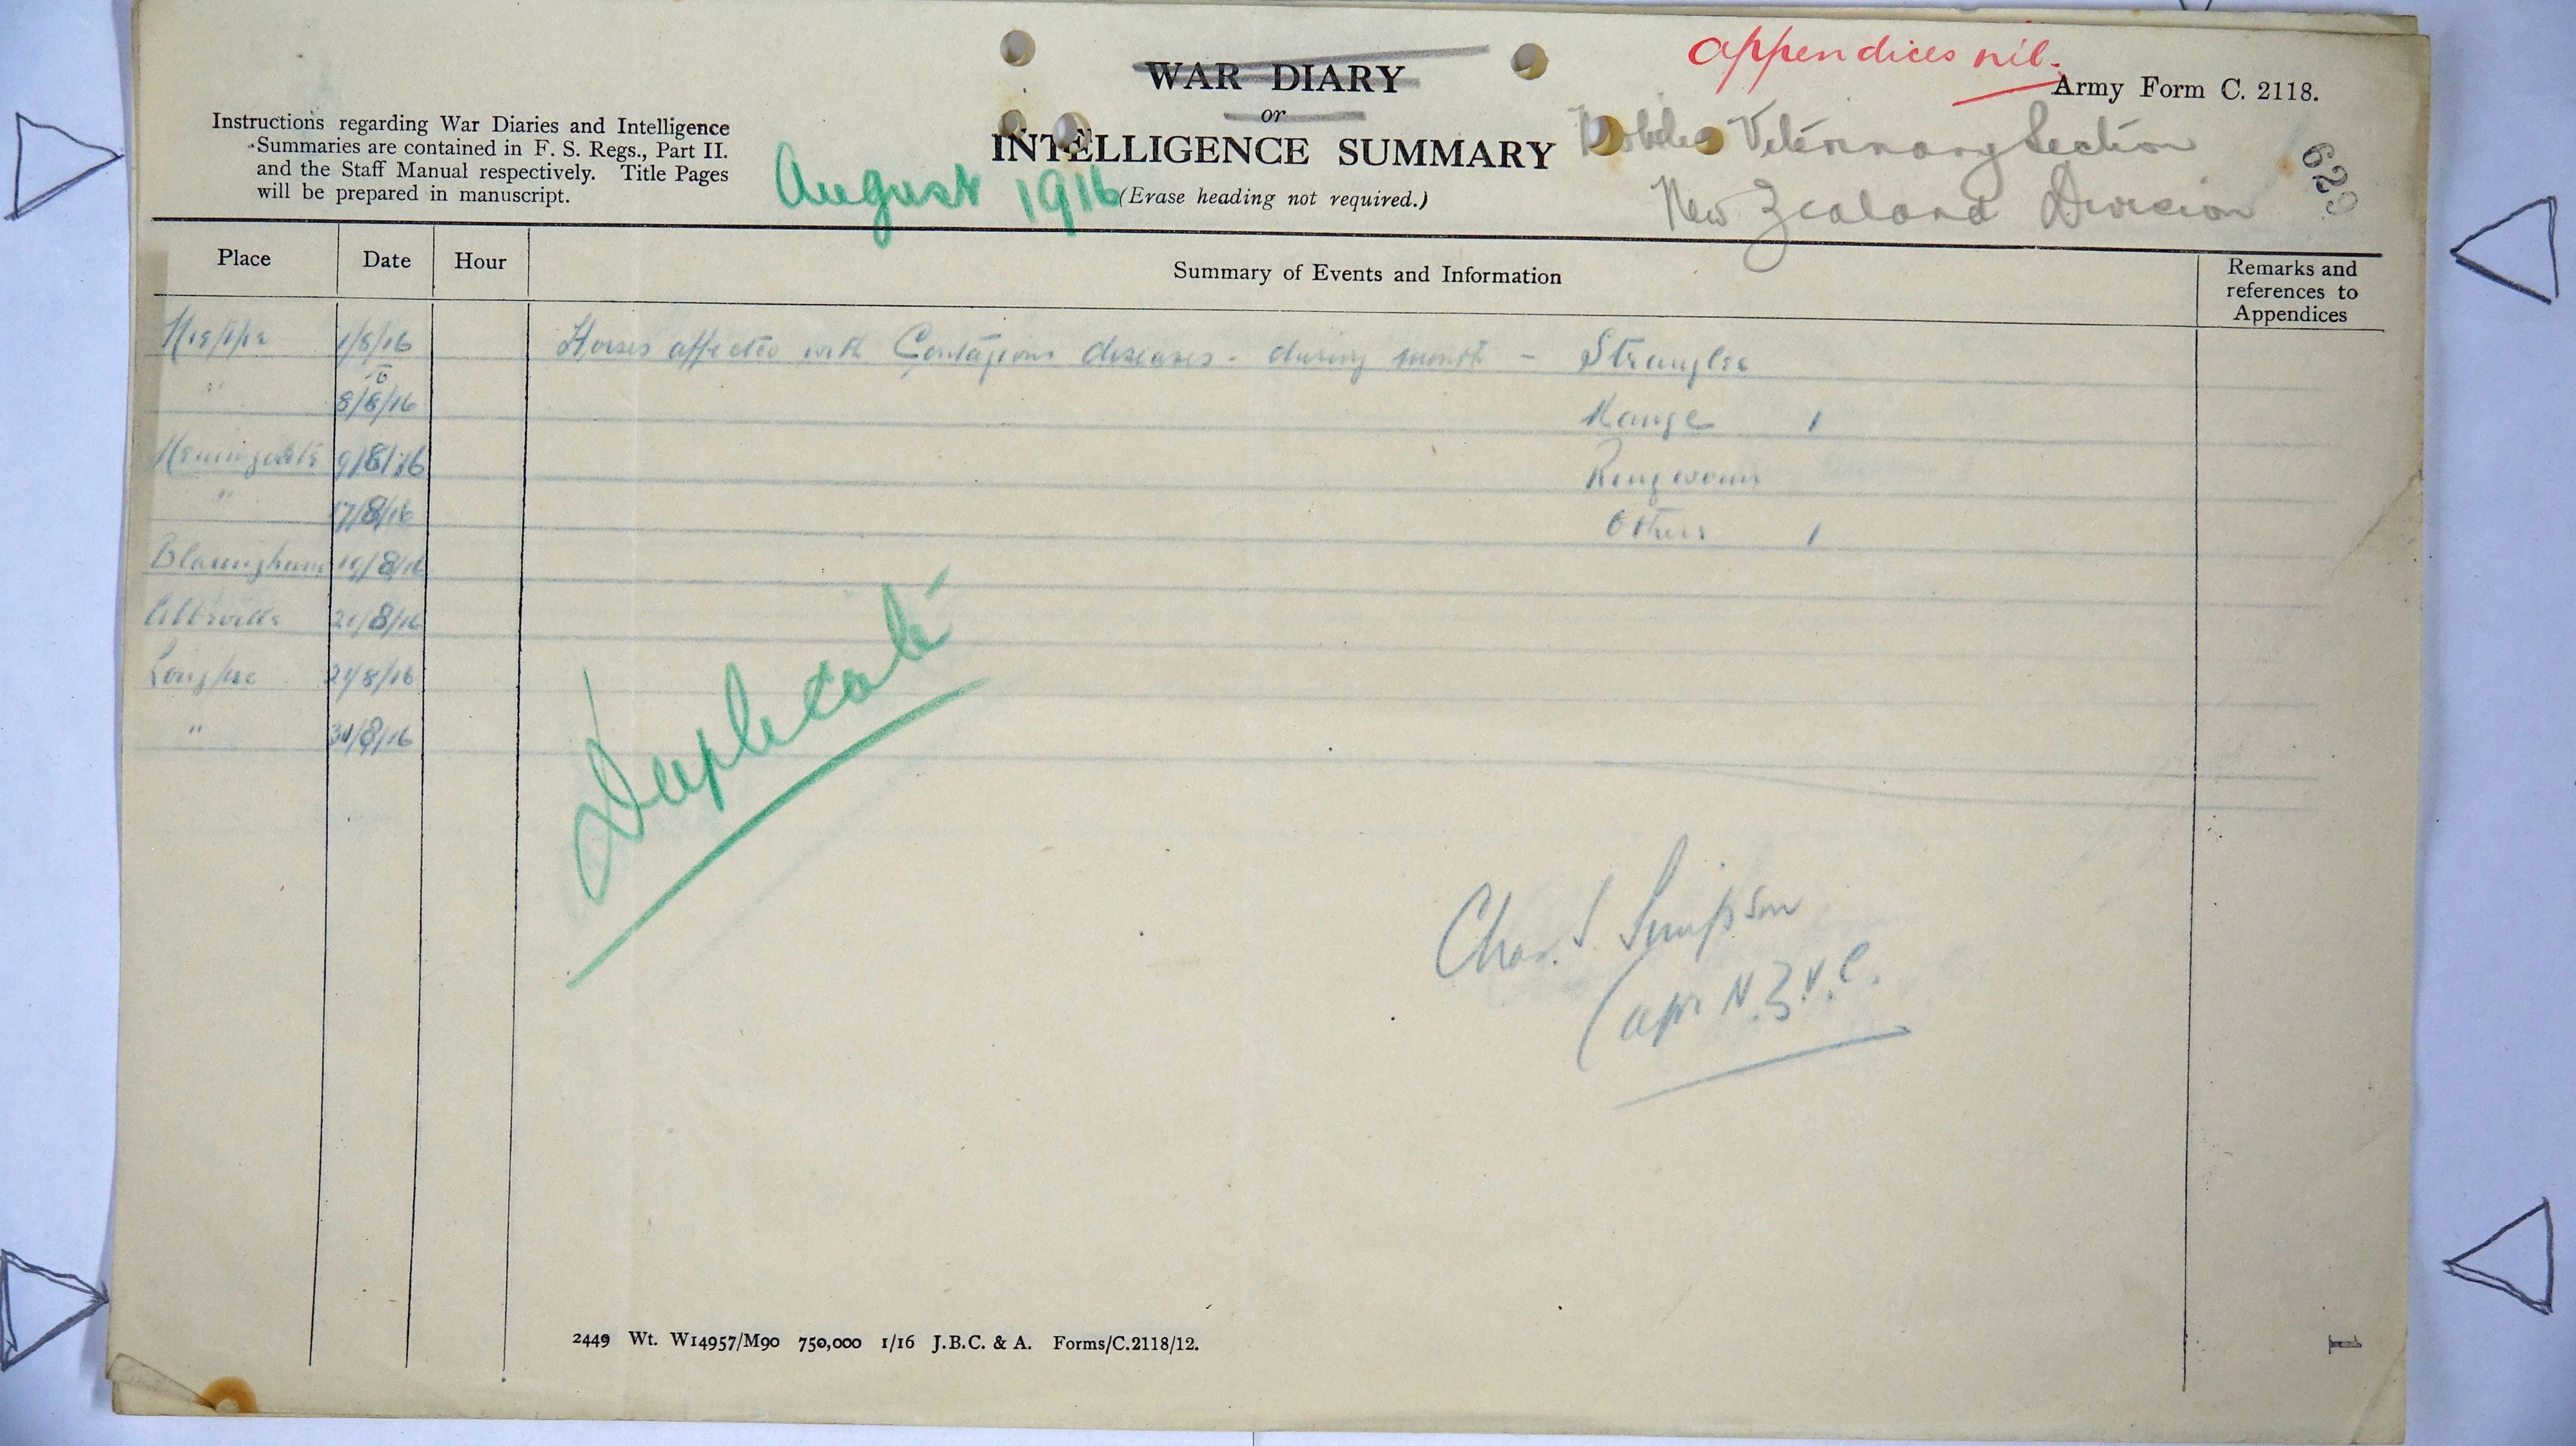 appendices nil.
WAR DIARY
or
INTELLIGENCE SUMMARY
(Erase heading not required.)
Army Form C. 2118.
Instructions regarding War Diaries and Intelligence
Summaries are contained in F. S. Regs., Part II.
and the Staff Manual respectively. Title Pages
will be prepared in manuscript.
August 1916
Mobile Veterinary Section
New Zealand Division
629
Place Date Hour Summary of Events and Information Remarks and
references to
Appendices
1/8/16 Horses affected with Contagious diseases - during month - Strangles
to
" 8/8/16 Mange 1
9/8/16 Ringworm
" 17/8/16 Others 1
Blaringhem 19/8/16
Abbeville 20/8/16
Longpre 21/8/16
" 31/8/16
Duplicate
Chas. S. Simpson
Capt N.Z.V.C.
2449 Wt. W14957/M90 750,000 1/16 J.B.C. & A. Forms/C.2118/12.
1